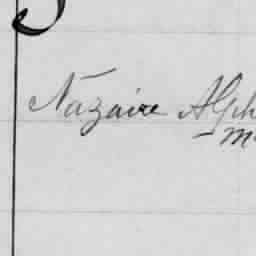 Nazaire Alph
- m